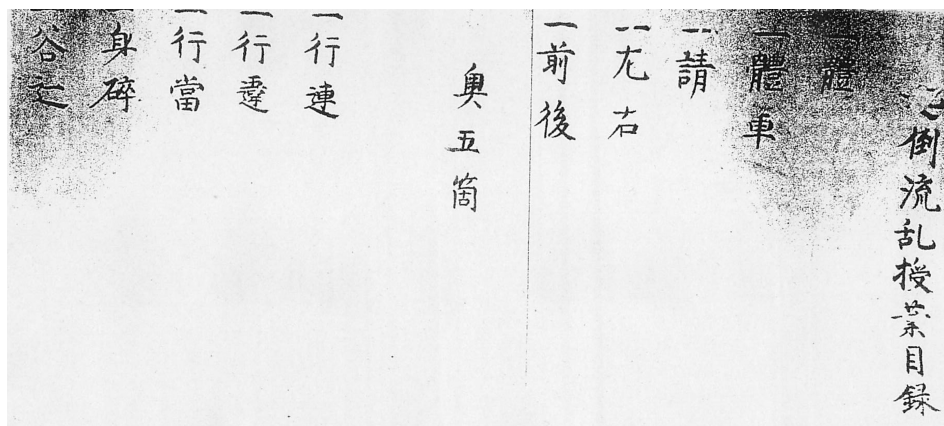 起倒流乱授業目録
一體
一體車
一請
一左右
一前後
奥五箇
一行連
一行違
一行當
一身碎
一谷辷